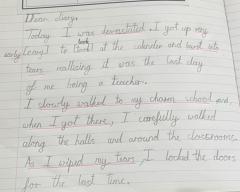 Dear diary,
Today I was devastated. I got up very
early [early] to look [look] at the calender and burst into
tears realising it was the last day
of me being a teacher.
I slowly walked to my charm school and,
when I got there, I carefully walked
along the halls and around the classrooms.
As I wiped my tears, I locked the doors
for the last time.